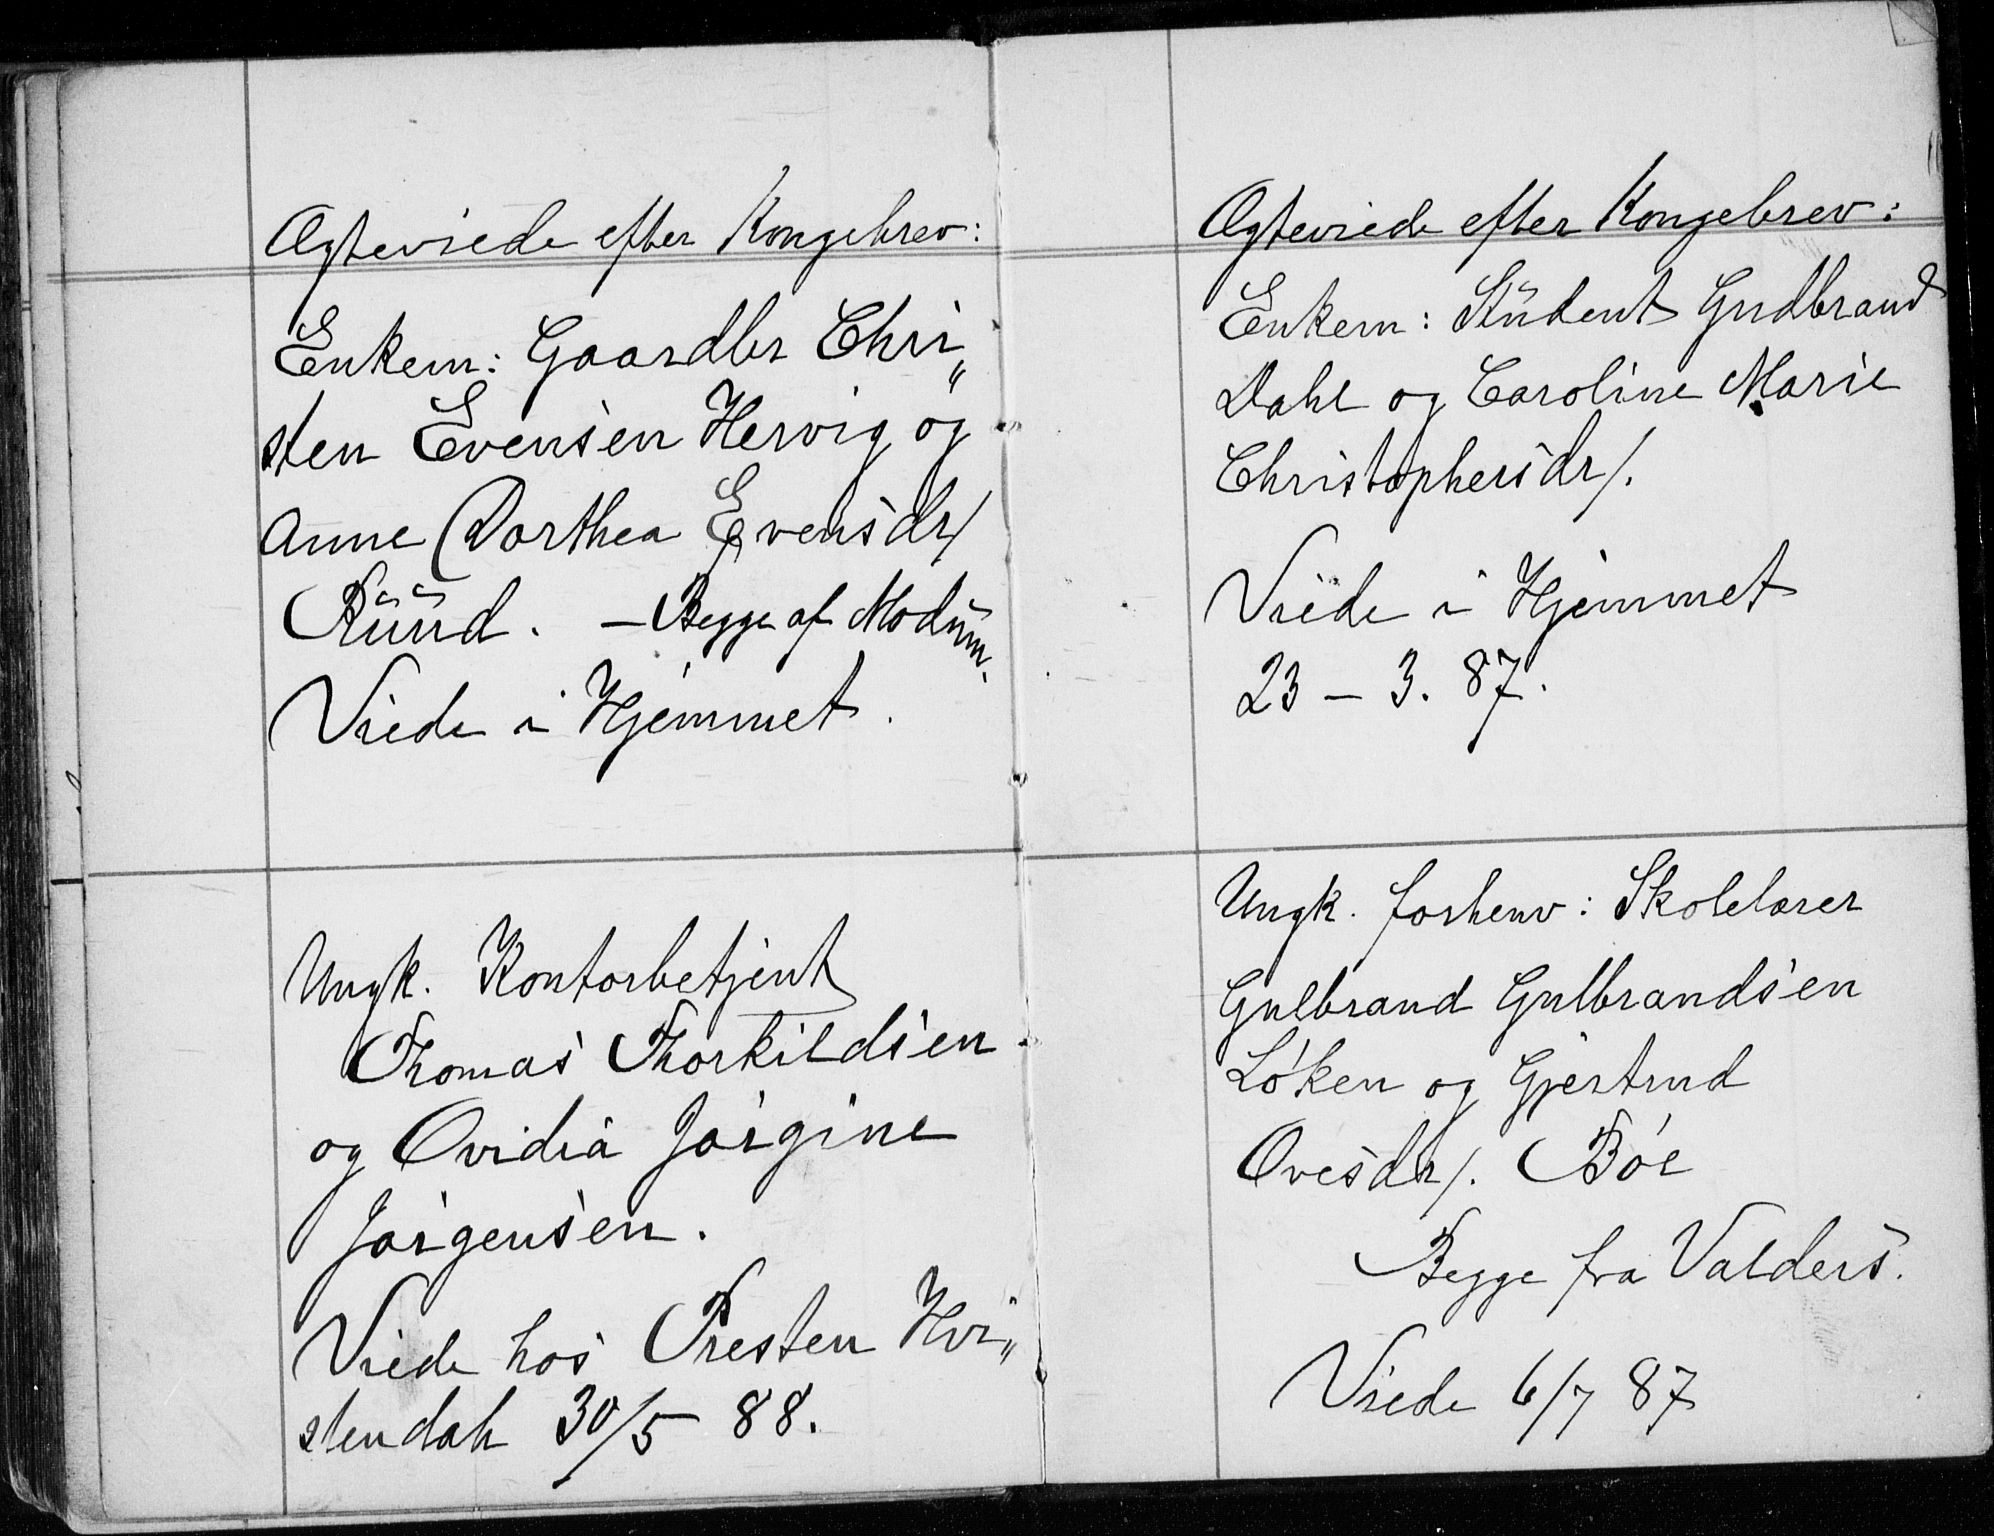 Ægteviede efter Kongebrev:
Enkem: Gaardbr Chri„
sten Evensen Hervig og
Anne Dorthea Evensdr/
Ruud. – Begge af Modum.
Viede i Hjemmet.
Ungk. Kontorbetjent
Thomas Thorkildsen
og Ovidia Jørgine
Jørgensen.
Viede hos Presten Hvi„
stendahl 30/5 88.
Ægteviede efter Kongebrev:
Enkem: Student Gudbrand
Dahl og Caroline Marie
Christophersdr/.
Viede i Hjemmet
23 – 3. 87.
Ungk. forhenv: Skolelærer
Gulbrand Gulbrandsen
Løken og Gjertrud
Ovesdr/. Bøe
Begge fra Valders.
Viede 6/7 87